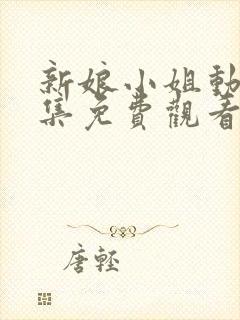 新娘小姐動
集免費觀看
唐輕